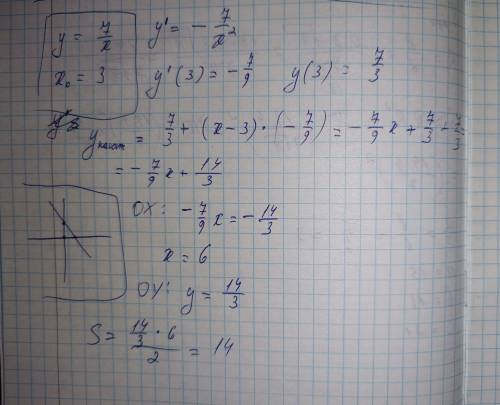 y = 7/x   y' = - 7/x²
x₀ = 3   y'(3) = - 7/9   y(3) = 7/3
y касат = 7/3 + (x-3) · (- 7/9) = - 7/9 x + 7/3 -
= - 7/9 x + 14/3
OX: - 7/9 x = - 14/3
x = 6
OY: y = 14/3
S = (14/3 · 6)/2 = 14